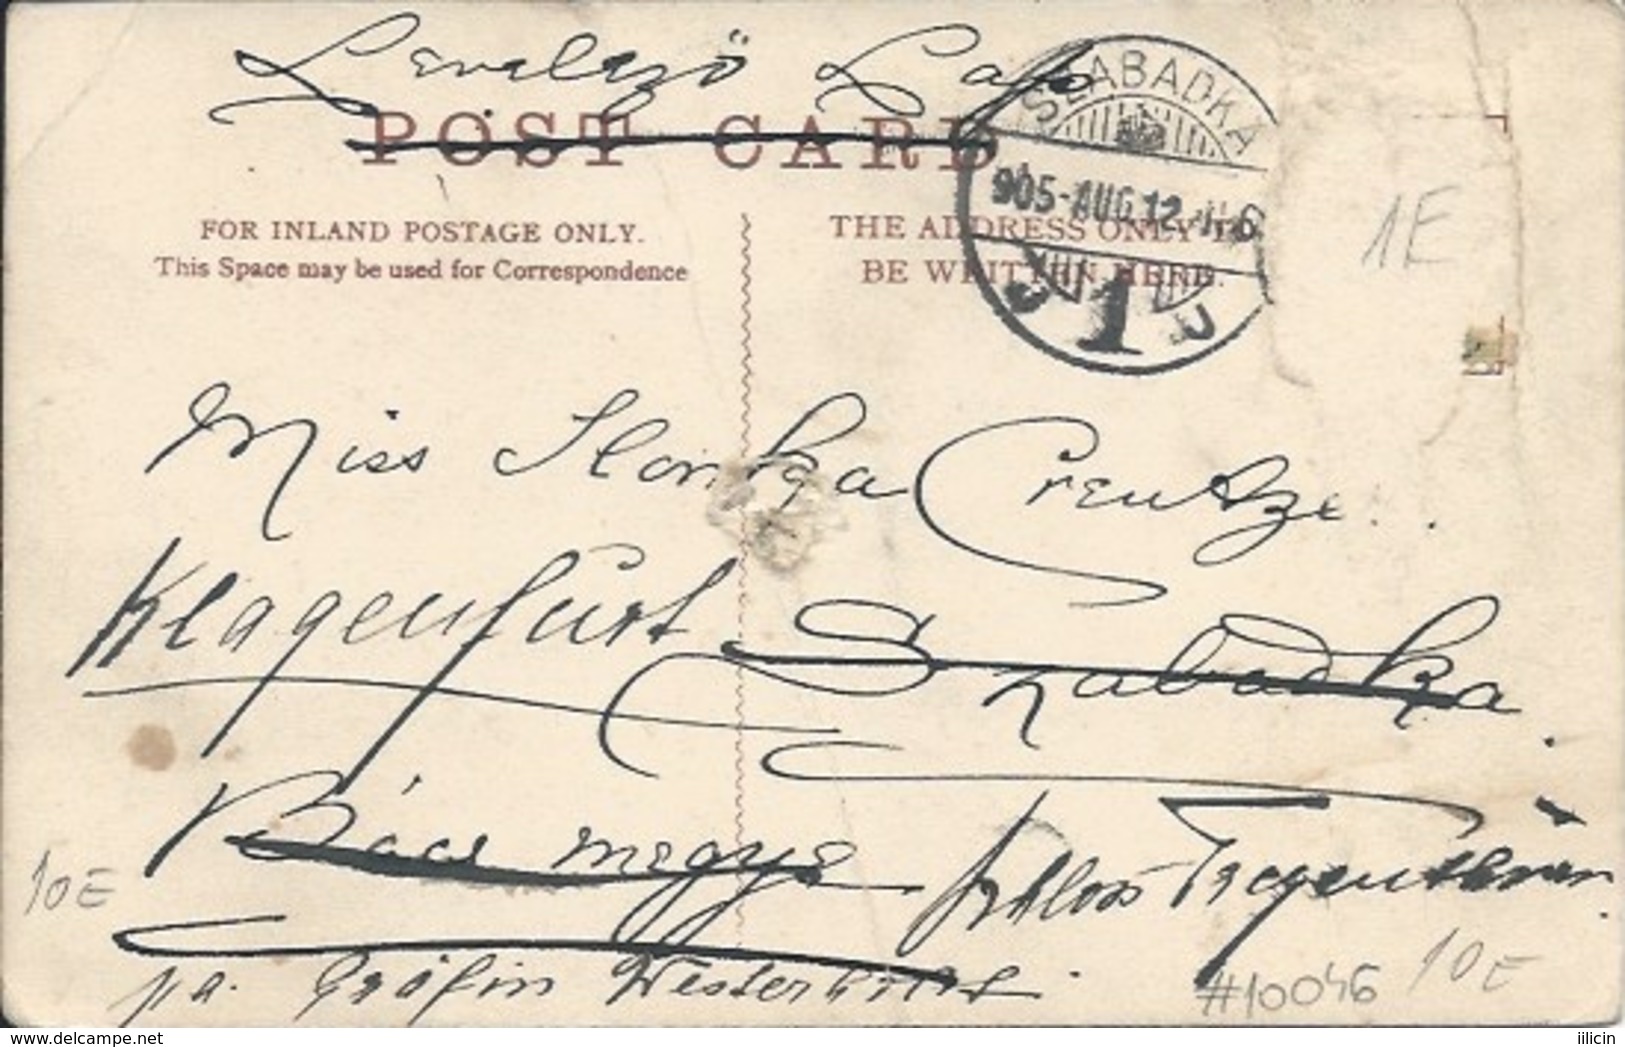 Levelező Lap
POST CARD
SZABADKA
905-AUG.12
1
FOR INLAND POSTAGE ONLY.
This Space may be used for Correspondence
THE ADDRESS ONLY TO
BE WRITTEN HERE.
1E
Miss Ilonka Creutze
Klagenfurt Szabadka.
Bács megye Schloss
pa. Gräfin
10E
#10046 10E
delcampe.net
illicin